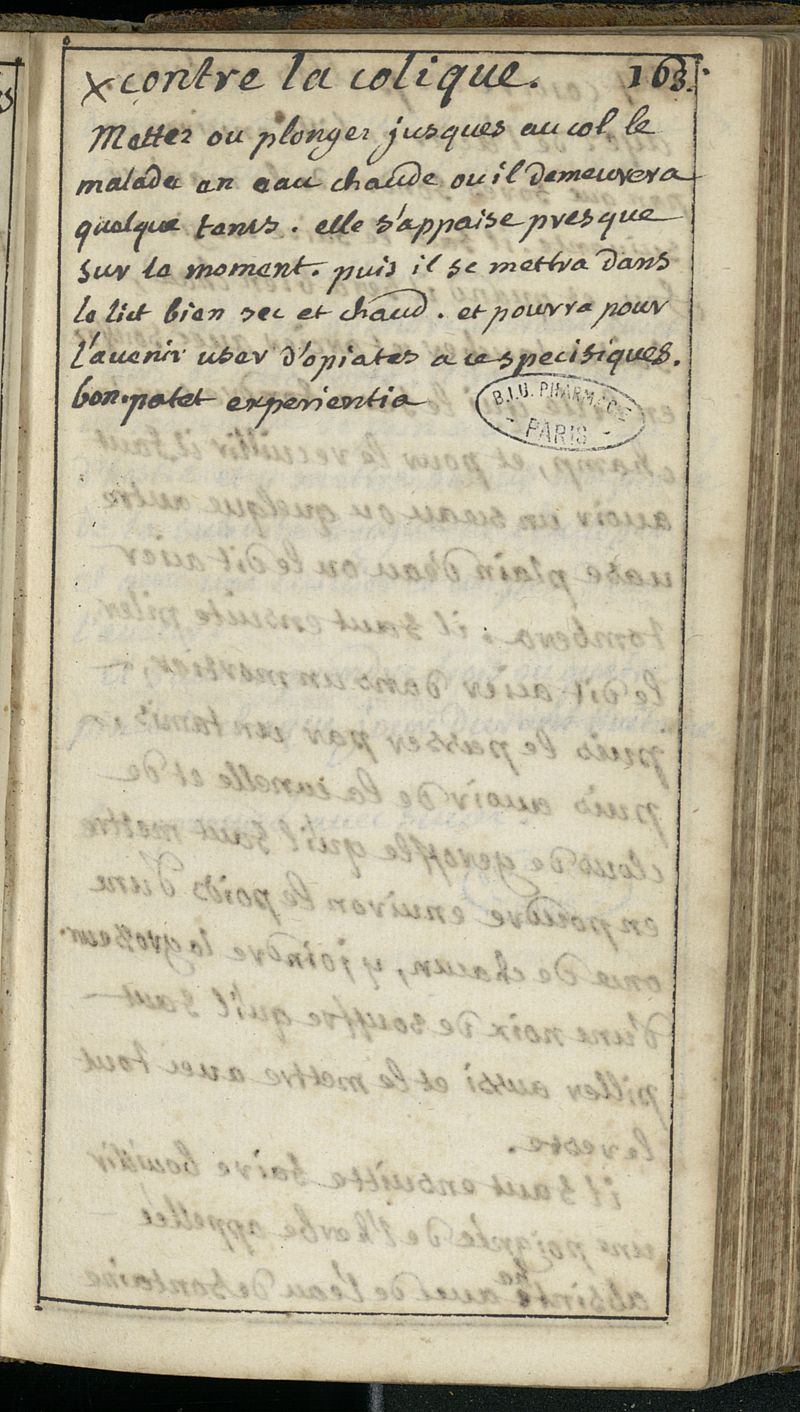 x contre la colique. 163.
Metter ou plonger jusques au col le
malade an eau chaude ou il demeurera
quelque tems. elle s'appaise presque
sur le moment. puis il se mettra dans
le lict bien sec et chaud. et pourra pour
l'auenir user d'opiates a ce specifiques.
bon. patet experientia
B.I.U. PHARMACIE
PARIS